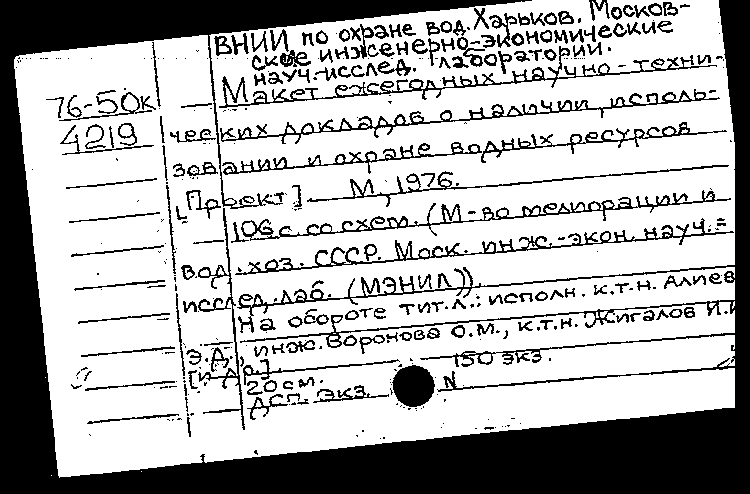 ВНИИ по охране вод. Харьков. Москов-
ские инженерно-экономические
науч.-исслед. лаборатории.
76-50к Макет ежегодных научно-техни-
4219 ческих докладов о наличии, исполь-
зовании и охране водных ресурсов
[Проект]. М., 1976.
106 с. со схем. (М-во мелиорации и
вод. хоз. СССР. Моск. инж.-экон. науч.=
исслед. лаб. (МЭНИЛ)).
На обороте тит. л.: исполн. к.т.н. Алиев
Э.Д., инж. Воронова О.М., к.т.н. Жигалов И.
[и др.].
20 см. 150 экз.
ДСП. экз. N